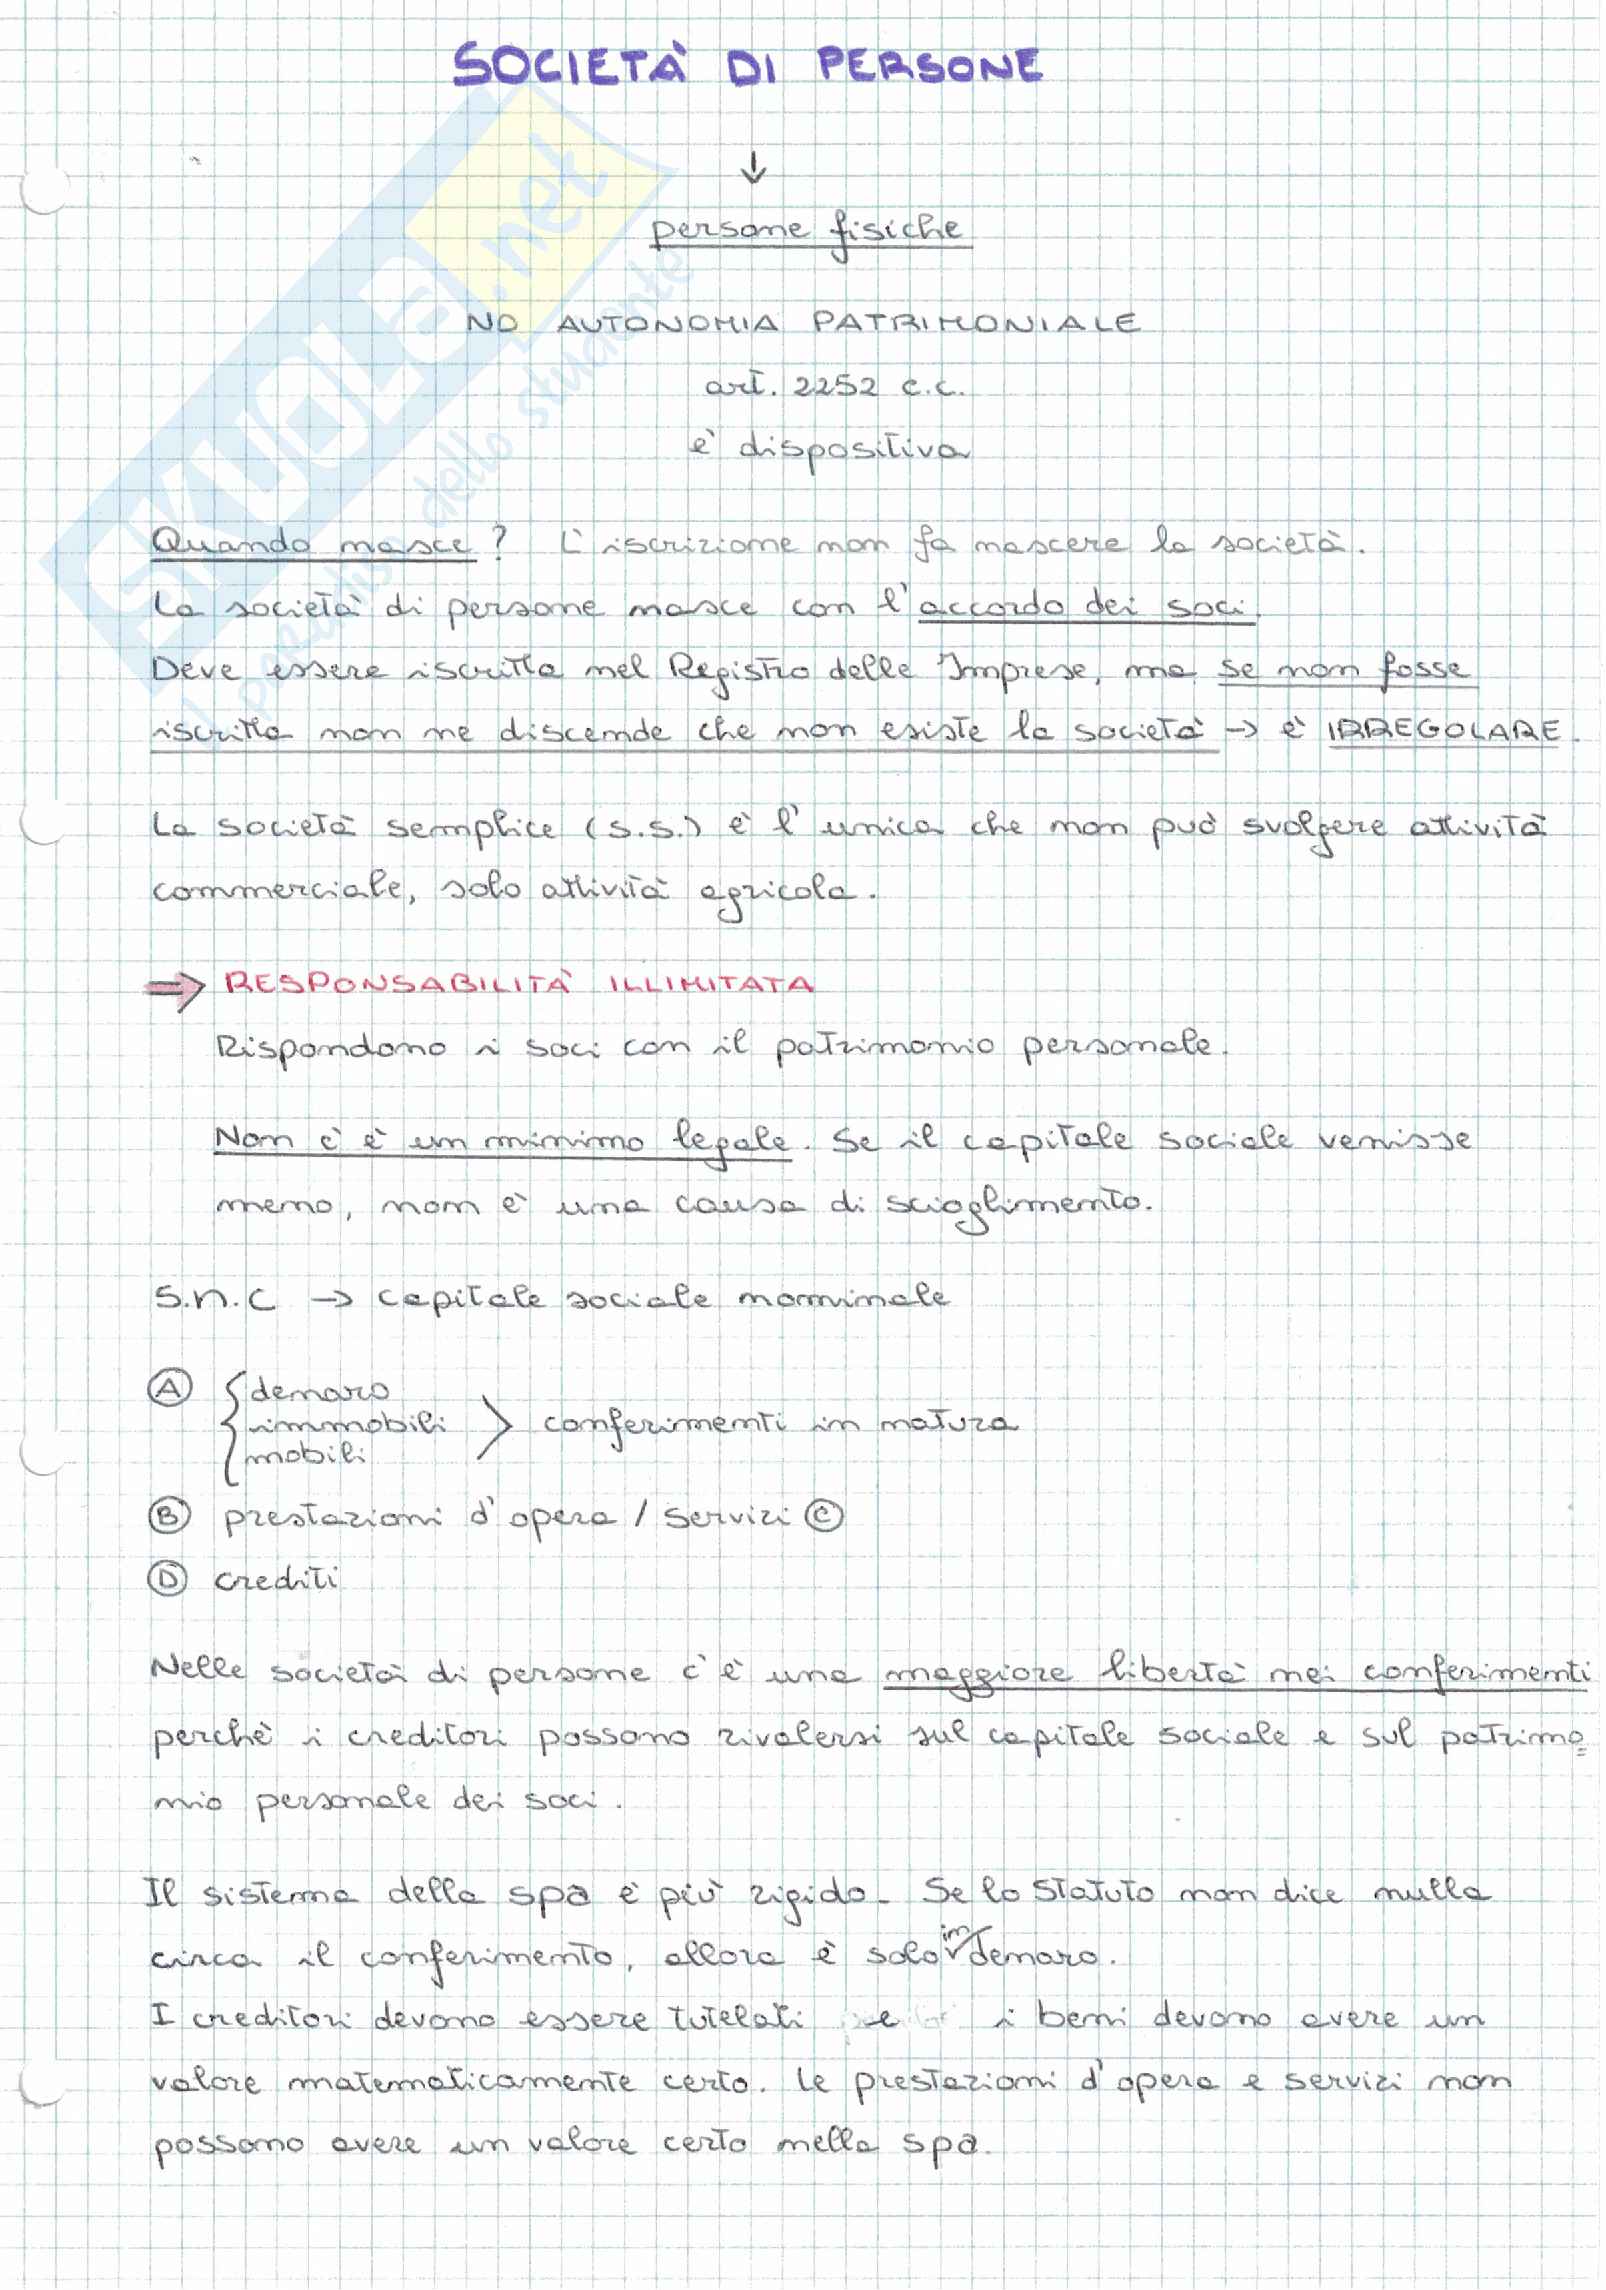 SOCIETÀ DI PERSONE
↓
persone fisiche
NO AUTONOMIA PATRIMONIALE
art. 2252 c.c.
è dispositiva
Quando nasce? L'iscrizione non fa nascere la società.
La società di persone nasce con l'accordo dei soci.
Deve essere iscritta nel Registro delle Imprese, ma se non fosse
iscritta non ne discende che non esiste la società → è IRREGOLARE.
La società semplice (s.s.) è l'unica che non può svolgere attività
commerciale, solo attività agricola.
⇒ RESPONSABILITÀ ILLIMITATA
Rispondono i soci con il patrimonio personale.
Non c'è un minimo legale. Se il capitale sociale venisse
meno, non è una causa di scioglimento.
S.n.c → capitale sociale nominale
Ⓐ { denaro
immobili > conferimenti in natura
mobili
Ⓑ prestazioni d'opera / servizi Ⓒ
Ⓓ crediti
Nelle società di persone c'è una maggiore libertà nei conferimenti
perchè i creditori possono rivalersi sul capitale sociale e sul patrimo=
nio personale dei soci.
Il sistema della spa è più rigido. Se lo statuto non dice nulla
circa il conferimento, allora è solo in denaro.
I creditori devono essere tutelati e i beni devono avere un
valore matematicamente certo. Le prestazioni d'opera e servizi non
possono avere un valore certo nella spa.
SKUOLA.net
il paradiso dello studente